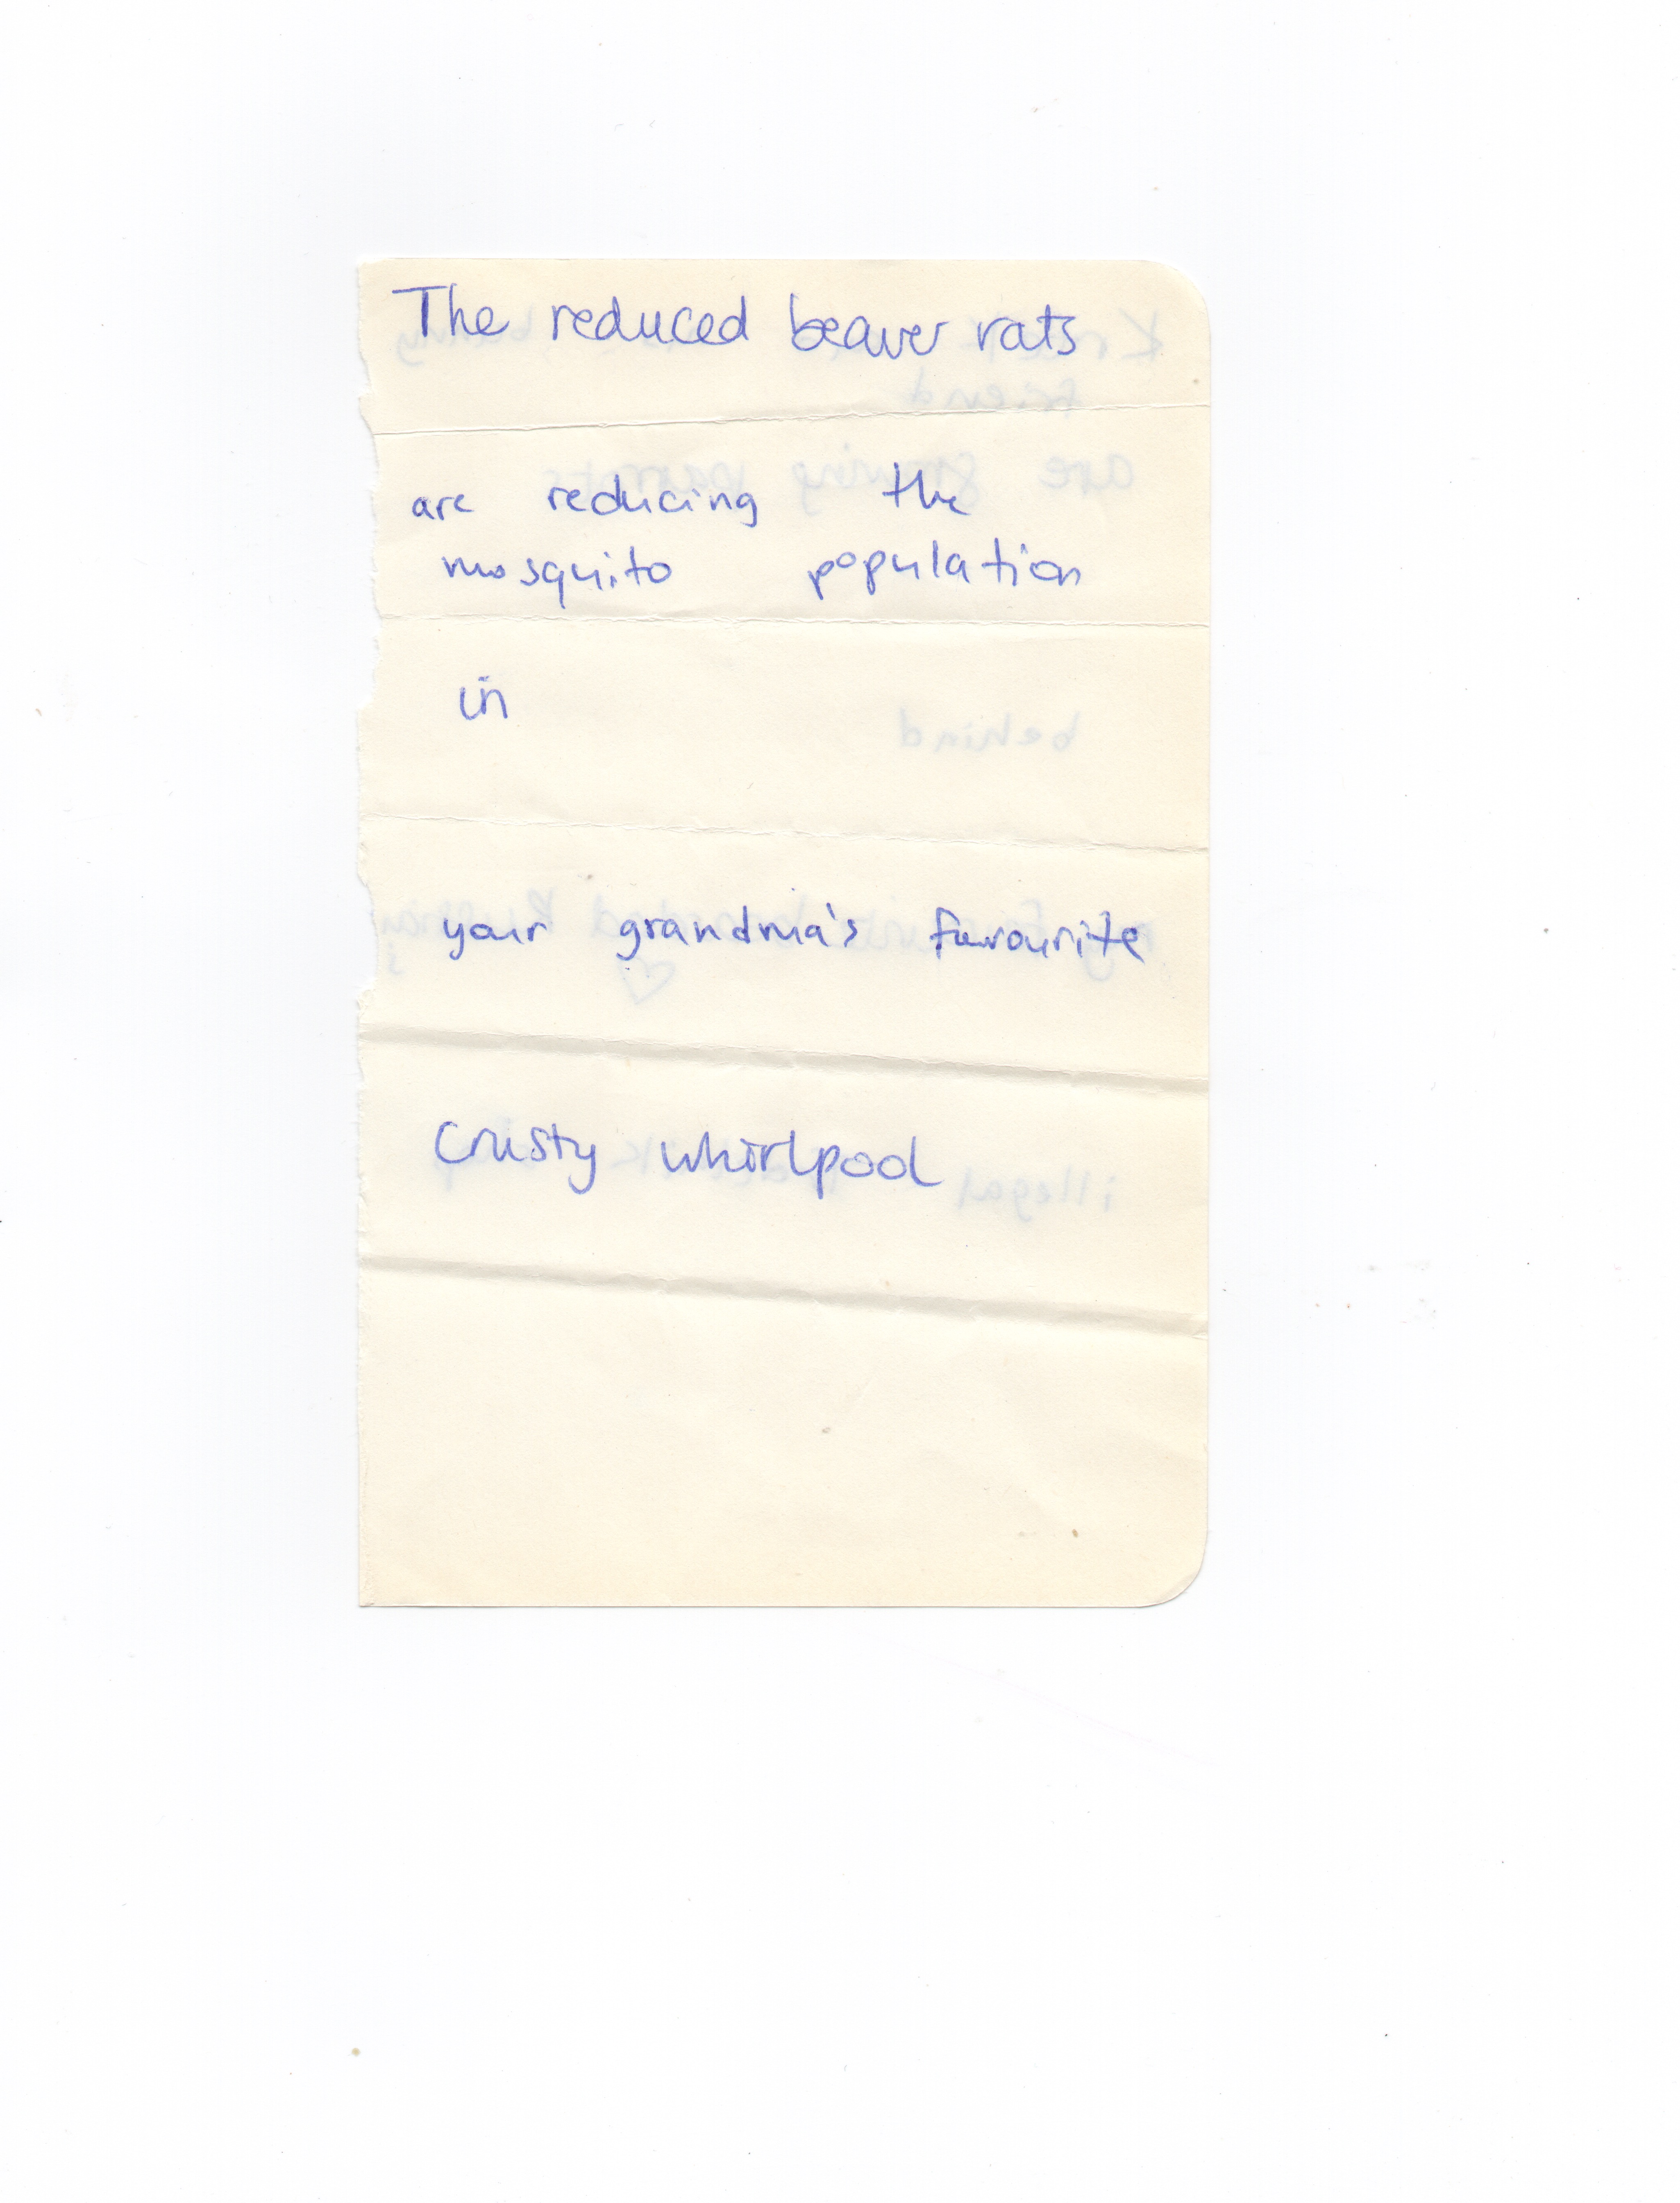 The reduced beaver rats
are reducing the
mosquito population
in
your grandma's favourite
Crusty whirlpool